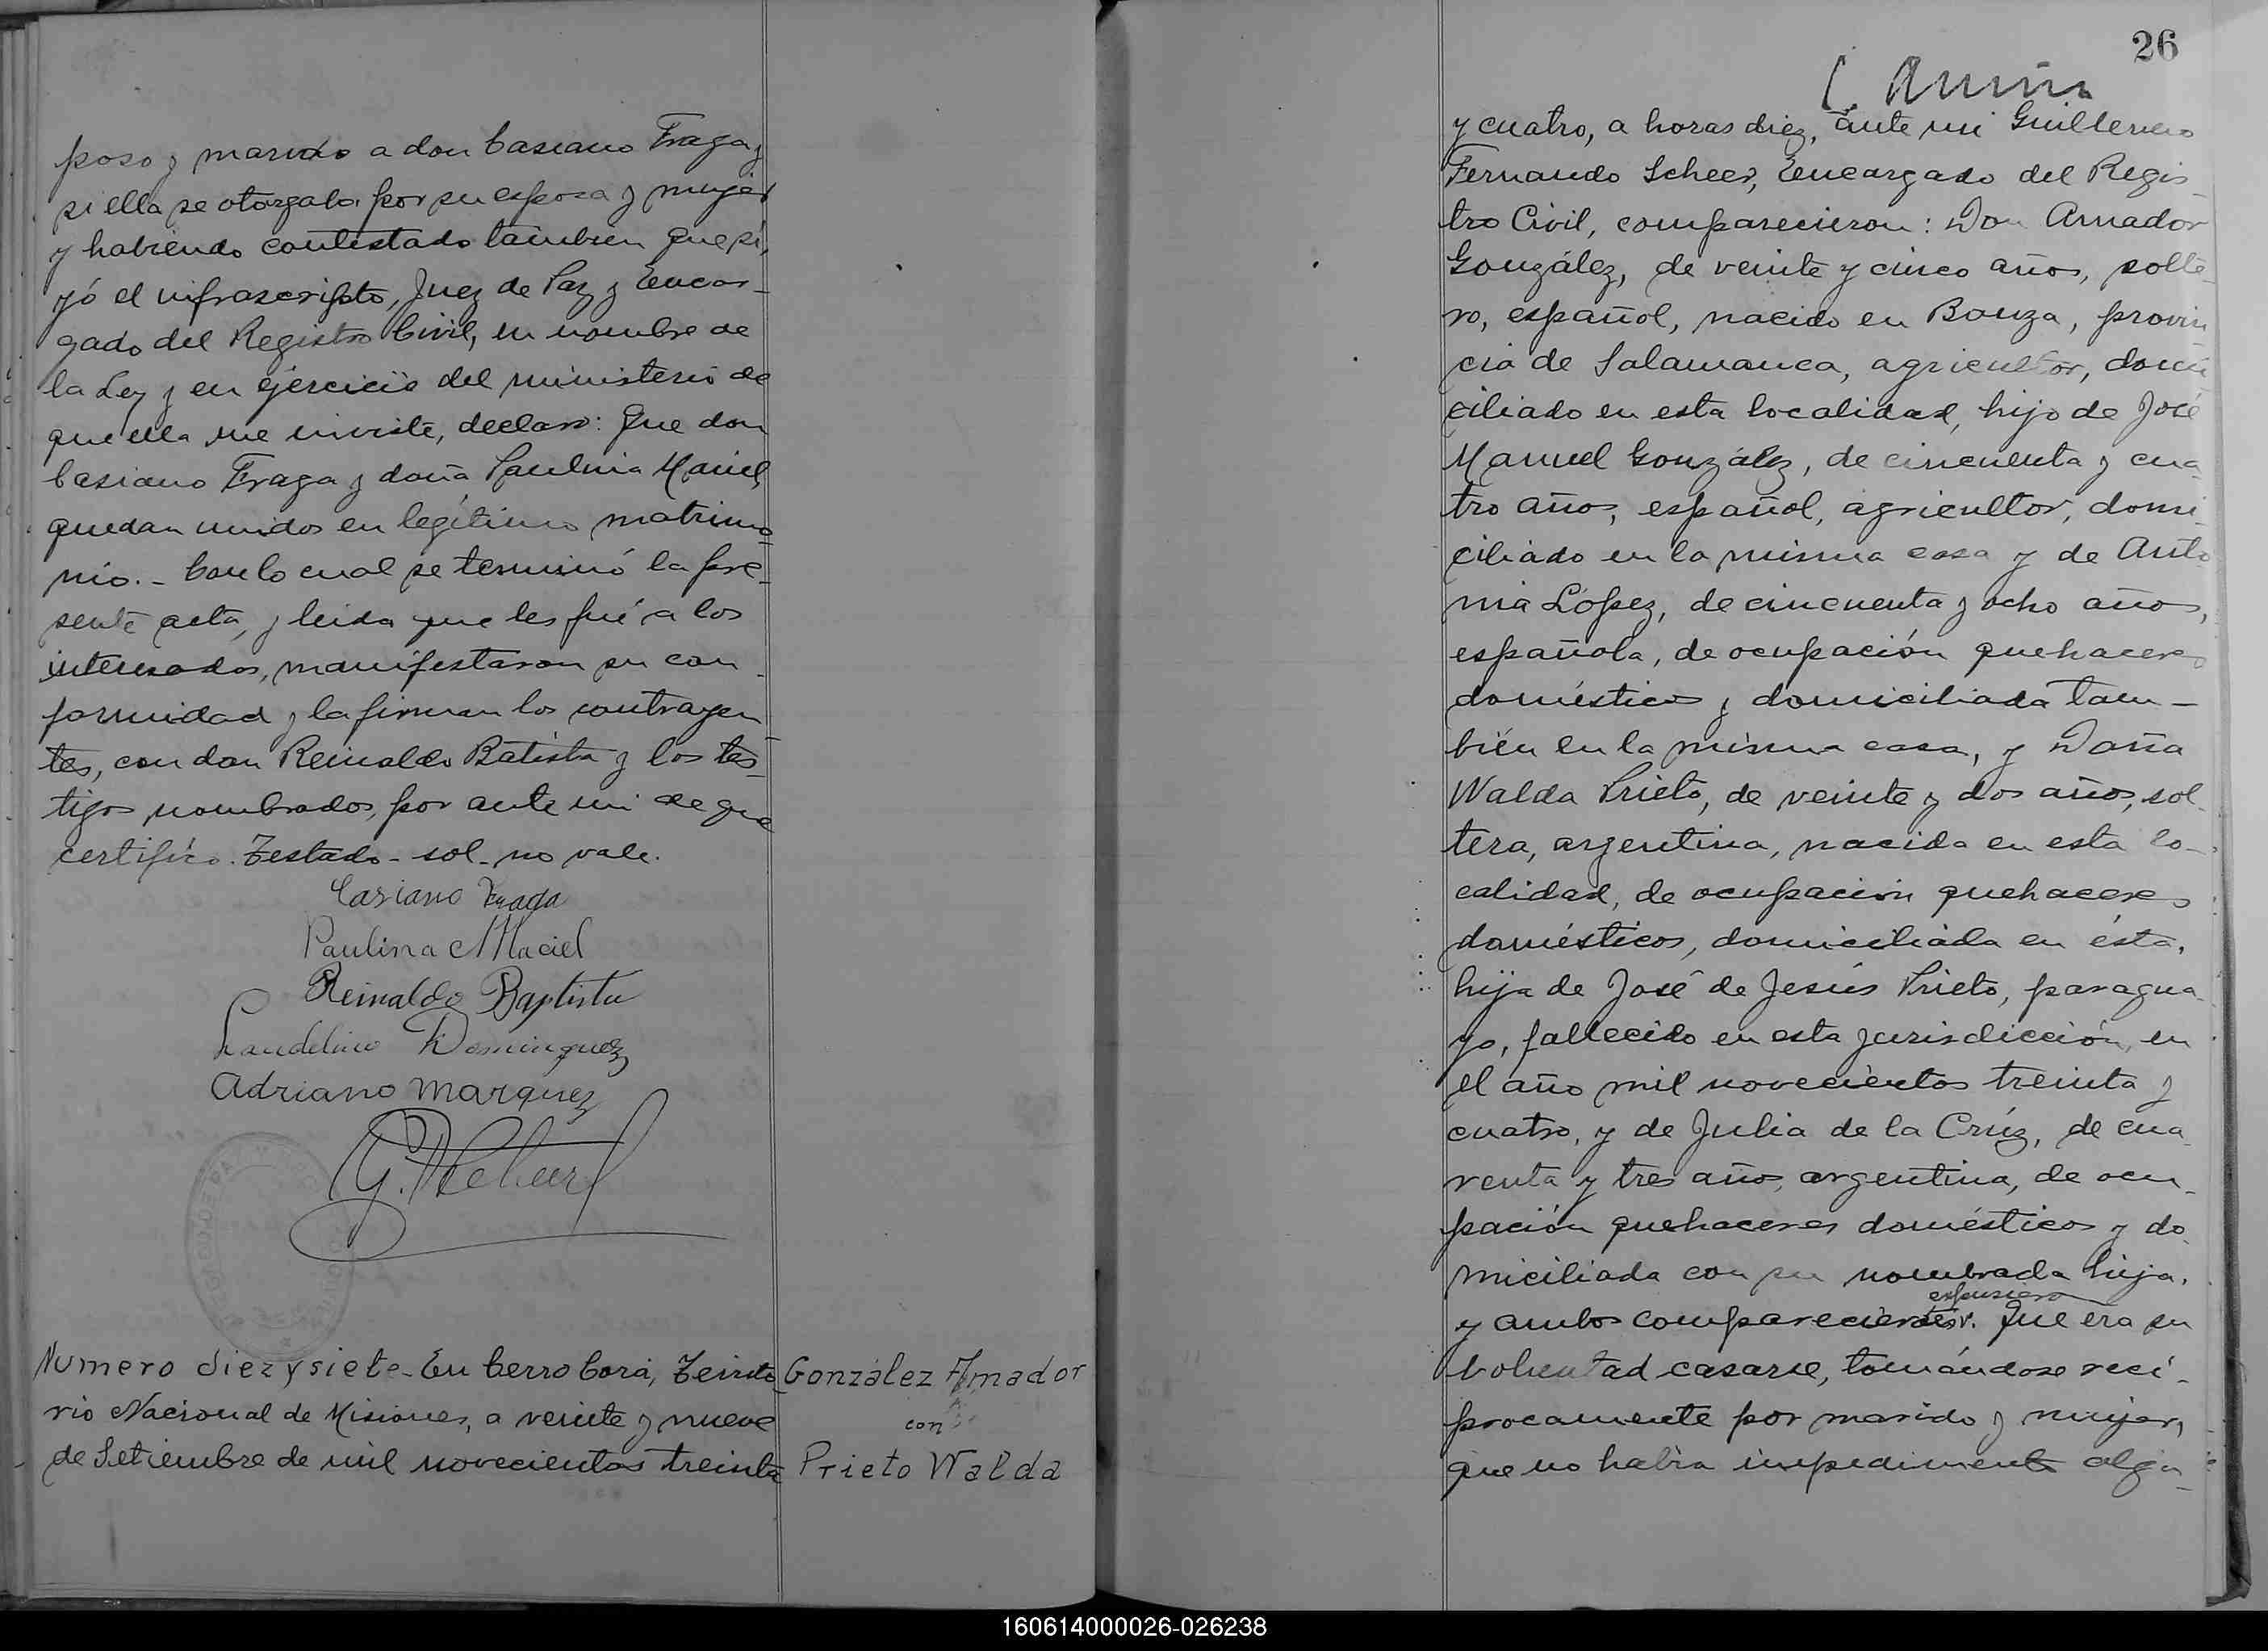 poso y marido a don Casiano Fraga y
si ella se otorgaba por su esposa y mujer
y habiendo contestado también que sí,
yó el infrascripto, Juez de Paz y Encar-
gado del Registro Civil, en nombre de
la Ley y en ejercicio del ministerio de
que ella me inviste, declaro: Que don
Casiano Fraga y doña Paulina Maciel,
quedan unidos en legítimo matrimo-
nio.- Con lo cual se terminó la pre-
sente acta, y leida que les fué a los
interesados, manifestaron su con-
formidad y la firman los contrayen-
tes, con don Reinaldo Batista y los tes-
tigos nombrados, por ante mi de que
certifico. Testado - sol - no vale.
Casiano Fraga
Paulina Maciel
Reinaldo Baptista
Laudelino Dominguez
Adriano Marquez
Numero diez y siete - En Cerro Corá, Territo-
rio Nacional de Misiones, a veinte y nueve
de Setiembre de mil novecientos treinta
González Amador
con
Prieto Walda
26
y cuatro, a horas diez, ante mi Guillermo
Fernando Scheer, Encargado del Regis-
tro Civil, comparecieron: Don Amador
González, de veinte y cinco años, solte-
ro, español, nacido en Bouza, provin
cia de Salamanca, agricultor, domi
ciliado en esta localidad, hijo de José
Manuel González, de cincuenta y cua
tro años, español, agricultor, domi-
ciliado en la misma casa y de Anto
nia López, de cincuenta y ocho años,
española, de ocupación quehaceres
domésticos y domiciliada tam-
bién en la misma casa, y Doña
Walda Prieto, de veinte y dos años, sol-
tera, argentina, nacida en esta lo-
calidad, de ocupación quehaceres
domésticos, domiciliada en ésta,
hija de José de Jesús Prieto, paragua-
yo, fallecido en esta jurisdicción, en
el año mil novecientos treinta y
cuatro, y de Julia de la Crúz, de cua-
renta y tres años, argentina, de ocu-
pación quehaceres domésticos y do-
miciliada con su nombrada hija,
expusieron
y ambos comparecientes. Que era su
voluntad casarse, tomándose recí-
procamente por marido y mujer,
que no habia impedimento algu-
160614000026-026238